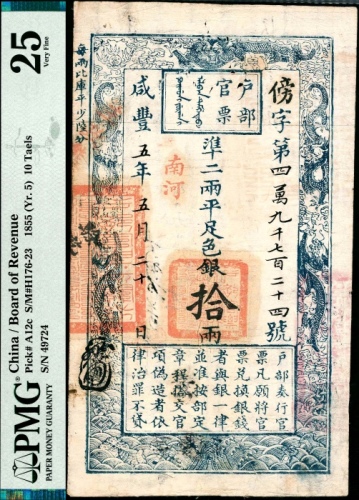 PMG® China / Board of Revenue
Pick# A12c S/M#H176-23 1855 (Yr. 5) 10 Taels
S/N 49724
PAPER MONEY GUARANTY
25
Very Fine
每兩比庫平少陸分
戶部
官票
傍字第四萬九千七百二十四號
準二兩平足色銀拾兩
咸豐五年五月二十日
南河
戶部奏行官
票凡願將官
票兌換銀錢
者與銀一律
並准按部定
章程搭交官
項偽造者依
律治罪不貸